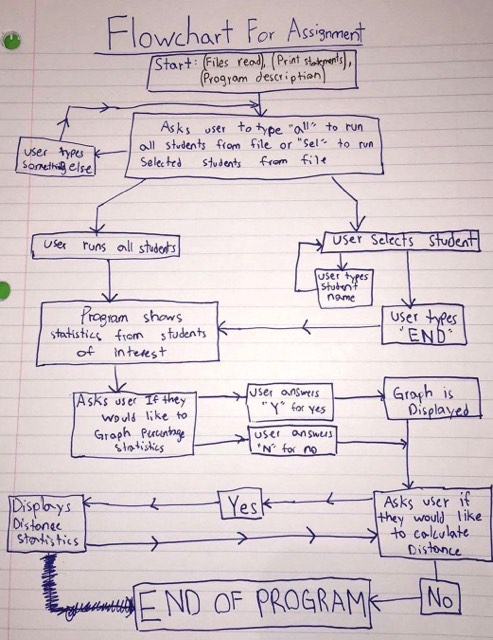 Flowchart For Assignment
Start: (Files read), (Print statements),
(Program description)
Asks user to type "all" to run
all students from file or "sel" to run
selected students from file
user types
something else
user runs all students
user selects student
user types
student
name
user types
"END"
Program shows
statistics from students
of interest
Asks user If they
would like to
Graph Percentage
Statistics
user answers
"Y" for yes
user answers
"N" for no
Graph is
Displayed
Asks user if
they would like
to calculate
Distance
Yes
Displays
Distance
Statistics
No
END OF PROGRAM